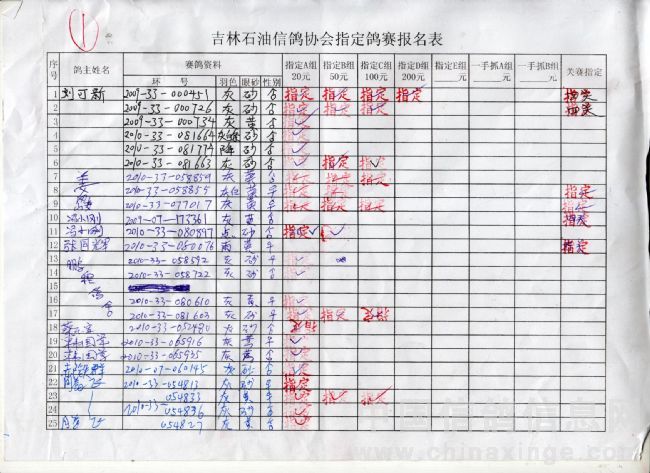 1
吉林石油信鸽协会指定鸽赛报名表
序号 鸽主姓名 赛鸽资料 指定A组20元 指定B组50元 指定C组100元 指定D组200元 指定E组 元 一手抓A组 元 一手抓B组 元 关赛指定
环 号 羽色 眼砂 性别
1 刘可新 2009-33-000451 灰 砂 合 指定 指定 指定 指定 指定
2 2009-33-000726 灰 砂 合 指定 指定 指定 指定
3 2009-33-000734 灰 黄 合 指定
4 2010-33-081664 砂 合 指定
5 2010-33-081774 砂 合 指定
6 2010-33-081663 灰 砂 合 指定 指定
7 2010-33-058859 灰 黄 合 指定 指定 指定
8 2010-33-058855 灰 黄 指定 指定 指定
9 2010-33-077017 灰 黄 指定 指定 指定 指定
10 冯小刚 2009-07-173361 灰 黄 合 指定
11 冯小刚 2010-33-080897 砂 合 指定
12 2010-33-080076 雨 黄 指定
13 鹏 2010-33-058592 灰 砂 指定
14 程 2010-33-058722 灰 砂 指定
15 鸽
16 舍 2010-33-080610 灰 黄 指定
17 2010-33-081603 灰 砂 指定 指定 指定
18 2010-33-052480 灰 砂 指定
19 林国学 2010-33-065916 灰 黄
20 林国学 2010-33-065935 灰 合
21 2010-07-060145 灰 砂 合
22 2010-33-054813 灰 砂 指定
23 054833 灰 黄 指定 指定 指定
24 2010-33-054836 灰 砂 指定
25 054827 灰 黄 指定
中国信鸽信息网
www.chinaxinge.com